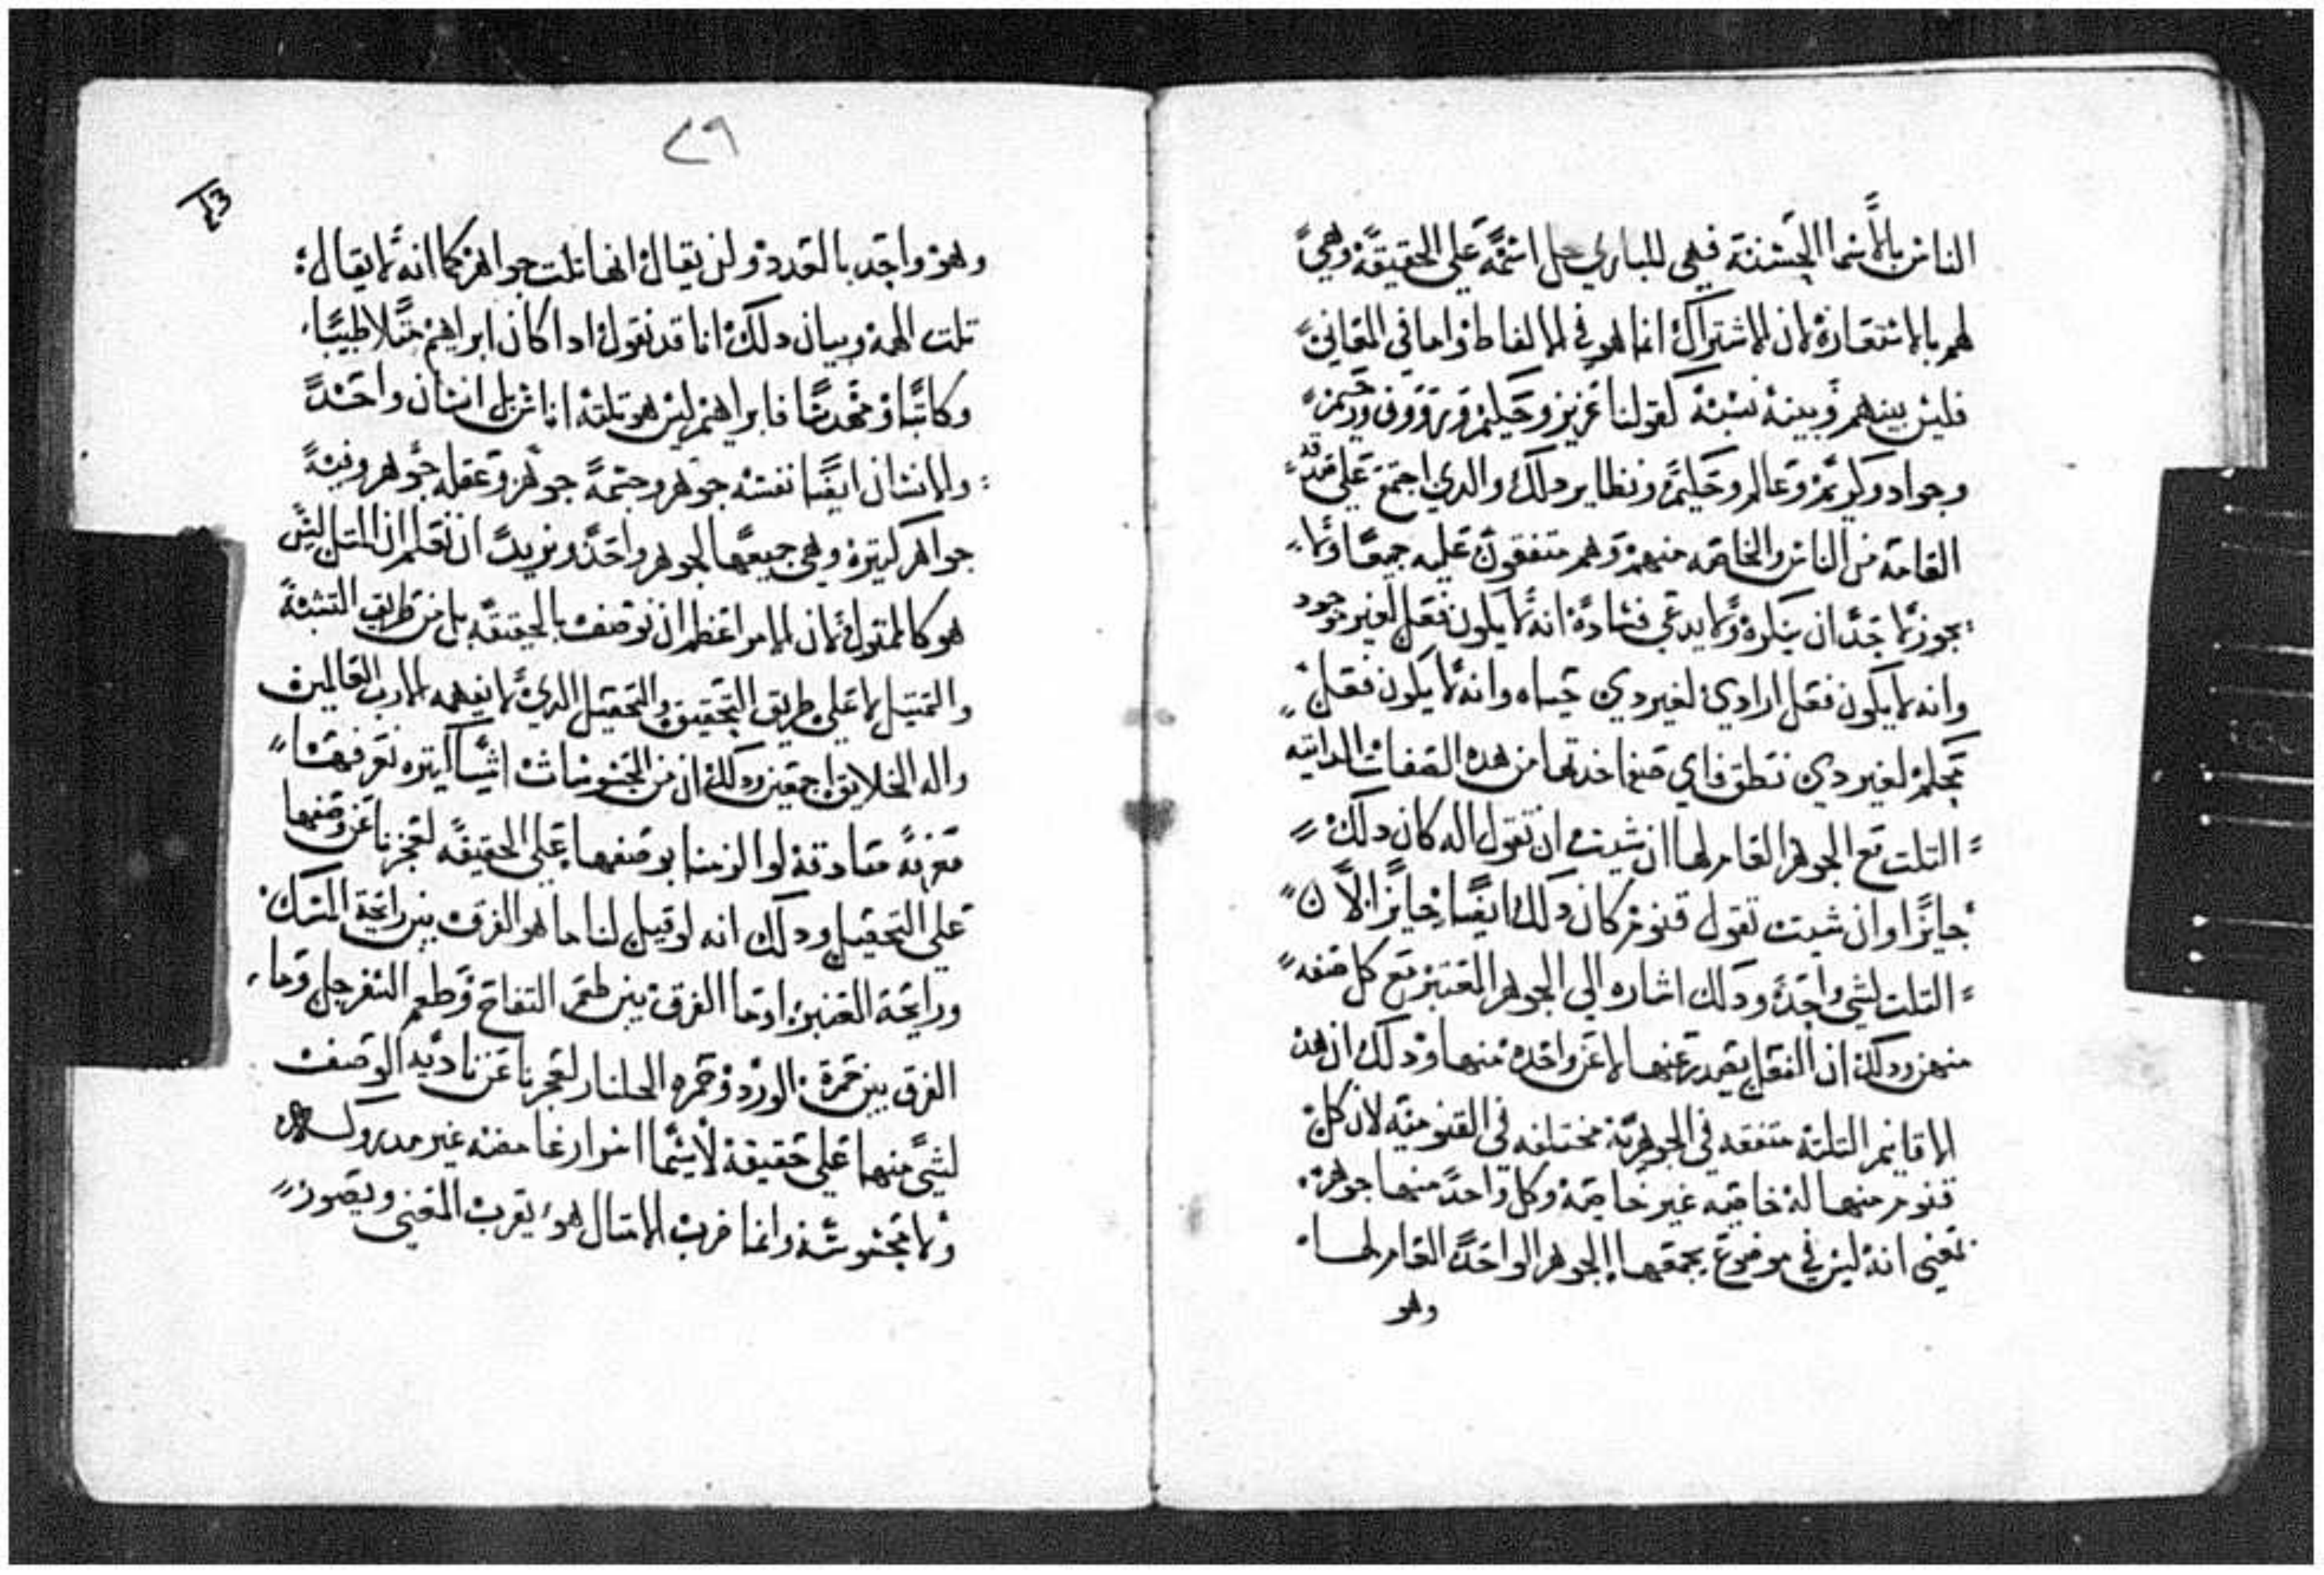 الناس بالاسما الحسنة فهي للباري جل اسمه على الحقيقة وهي
لهم بالاستعارة لان الاشتراك انما هو في الالفاظ واما في المعاني
فليس بينهم وبينه نسبة كقولنا عزيز وحكيم ورووف ورحيم
وجواد وكريم وعالم وحليم ونظاير دلك والدي اجتمع عليه
العامة من الناس والخاصه منهم وهم متفقون عليه جميعا ولا
يجوز لاحد ان ينكره ولا يدعي فساده انه لا يكون فعل لغير موجود
وانه لا يكون فعل ارادي لغير دي حياه وانه لا يكون فعل
محكم لغير دي نطق فاي صفه اخدتها من هده الصفات الداتيه
التلت مع الجوهر العام لها ان شيت ان تقول اله كان دلك
جايزا وان شيت تقول قنوم كان دلك ايضا جايزا لان
التلت لشي واحد ودلك اشاره الى الجوهر المعتبر مع كل صفه
منهن ودلك ان الفعل يصدر عنها لا عن واحده منها ودلك ان هده
الاقانيم التلتة متفقه في الجوهرية مختلفه في القنوميه لان كل
قنوم منها له خاصيه غير خاصية وكل واحد منها جوهر
بمعنى انه ليس في موضوع يجمعها الجوهر الواحد العام لها
وهو
٧٩
43
وهو واحد بالعدد ولن يقال انها تلت جواهر كما انه لا يقال
تلت الهة وبيان دلك انا قد نقول ادا كان ابراهيم مثلا طبيبا
وكاتبا ومهندسا فابراهيم ليس هو تلتة اناس بل انسان واحد
والانسان ايضا نفسه جوهر وجسمه جوهر وعقله جوهر وفيه
جواهر كتيرة وهي جميعها لجوهر واحد ونريد ان نعلم ان المتل ليس
هو كالممتول لان الامر اعظم ان نوصف بالحقيقة بل من طريق التشبه
والتمتيل لا على طريق التحقيق والتحصيل الدي لا يفهمه الا رب العالمين
واله الخلايق اجمعين ودلك ان من المحسوسات اشيا كتيره نعرفها
معرفة صادقة لو الزمنا بوصفها على الحقيقه لعجزنا عن وصفها
على التحصيل ودلك انه لو قيل لنا ما هو الفرق بين رايحة المسك
ورايحة العنبر اوما الفرق بين طعم التفاح وطعم السفرجل وما
الفرق بين حمرة الورد وحمره الجلنار لعجزنا عن تاديه الوصف
لشي منهما على حقيقة لاسيما امورا غامضه غير مدروكـه
ولا محسوسة وانما ضرب الامتال هو يقرب المعنى ويصور